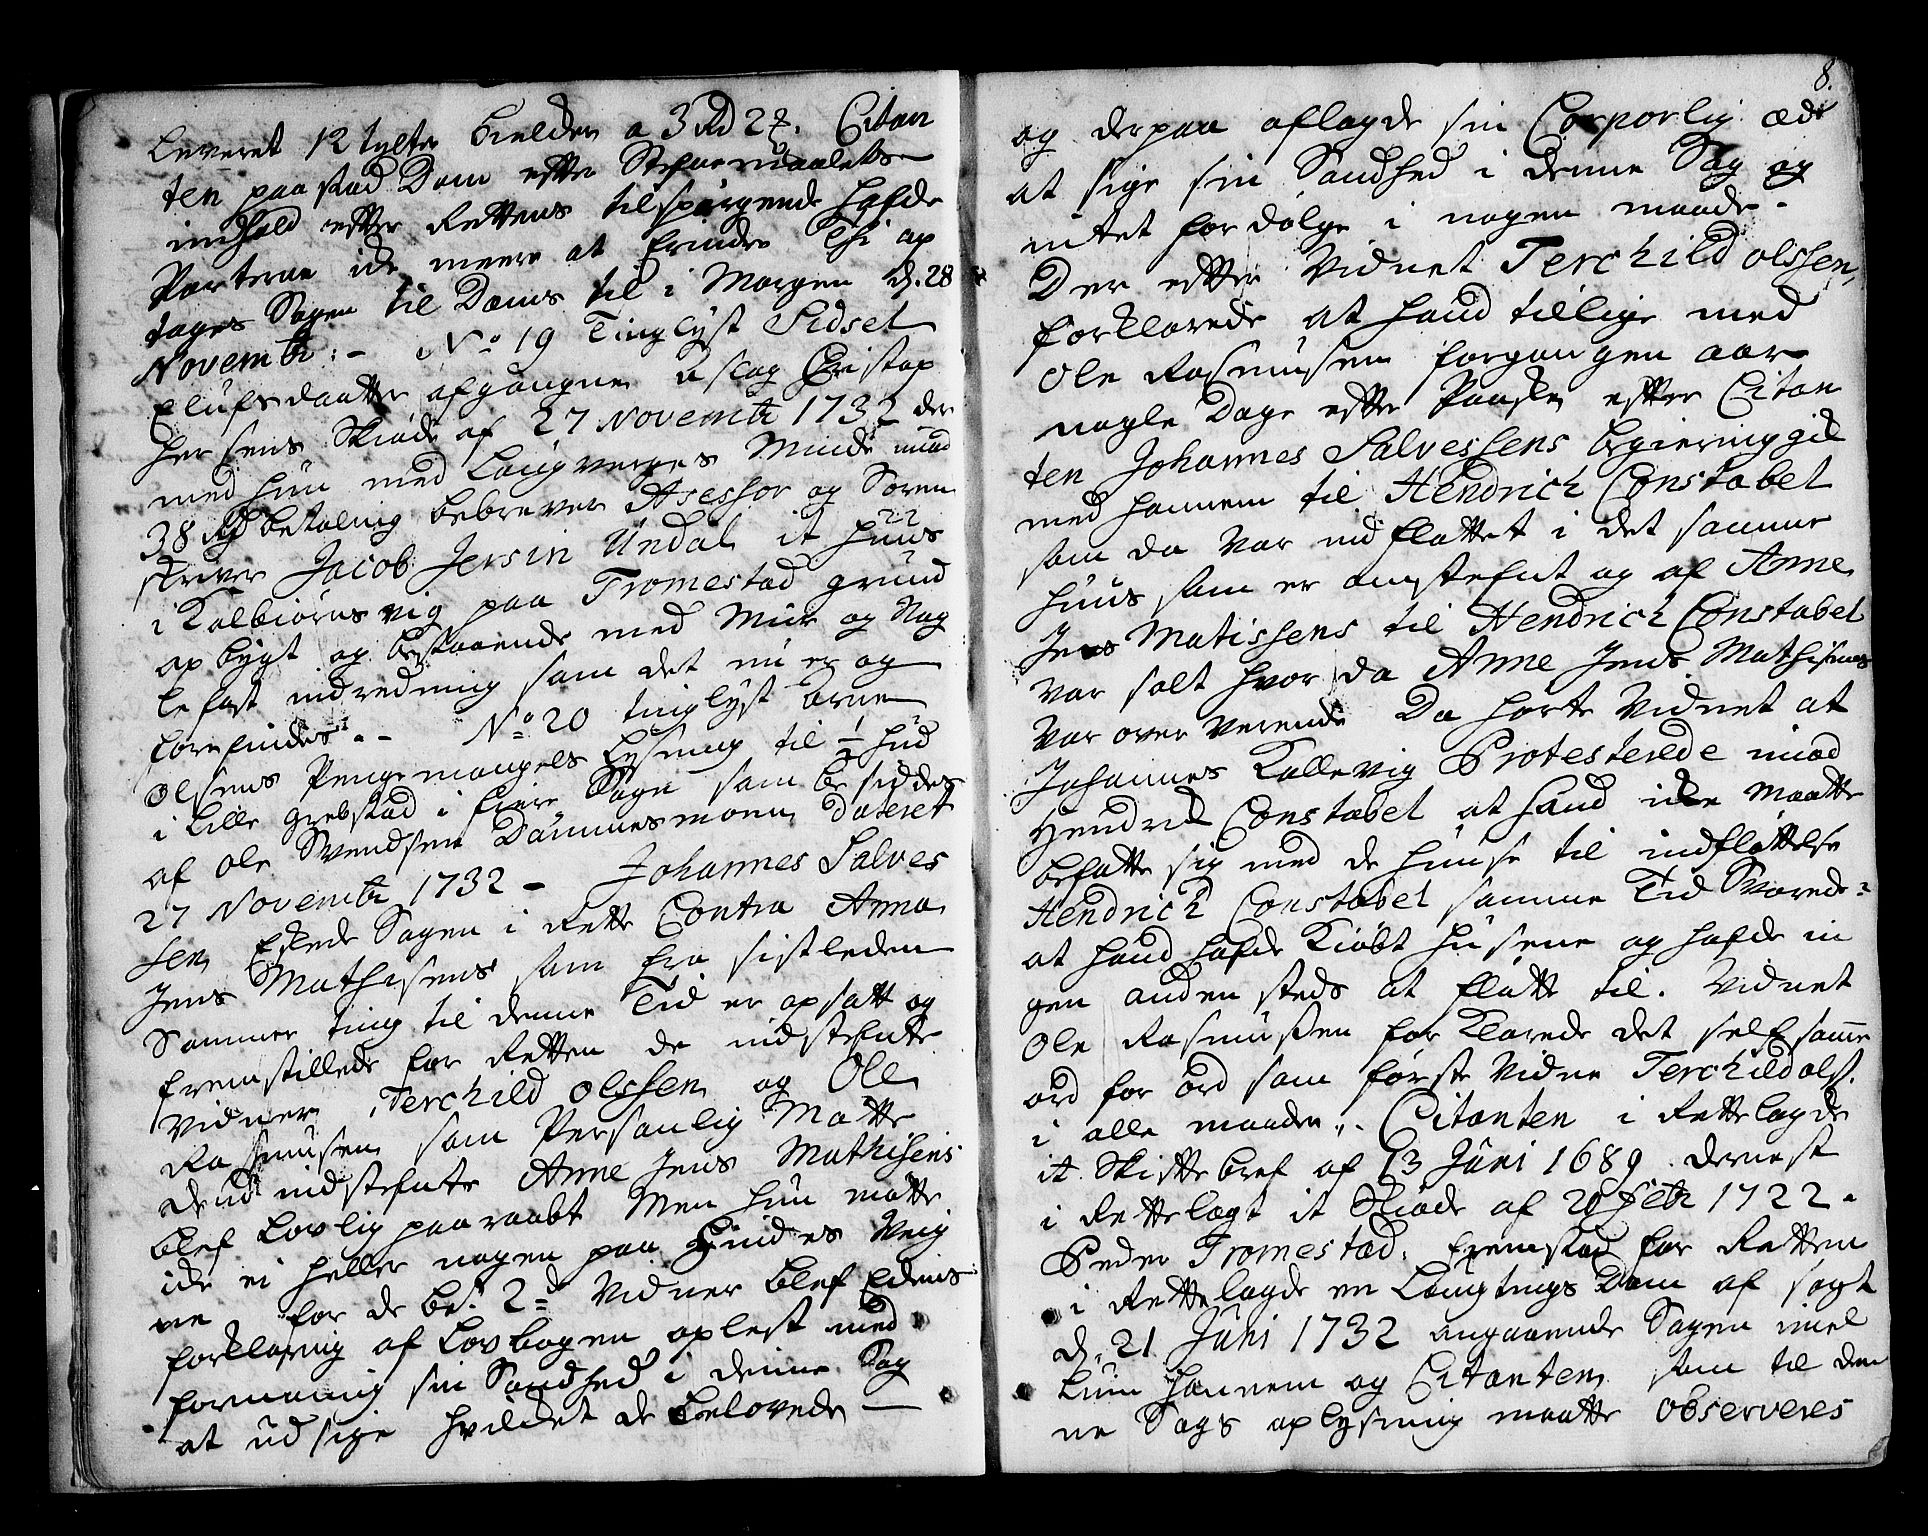 Leveret 12 tylter bielder a 3 Rd 2 Citan
ten paastod Dom efter Stefnemaalets
indhold efter Rettens tilspörgende hafde
Parterne icke meere at Erindre Thi op
tages Sagen til Doms til i Morgen d. 28
Novembr: - No 19 Tinglyst Sidsel
Elufsdaatter afgangne Aslag Christop
hersens Skiöde af 27 Novembr 1732 der
med hun med Laugverges Minde imod
38 Rd betaling bebrever Assessor og Soren
skriver Jacob Jersin Undal it huus
i Kolbiörns vig paa Tromestad grund
opbygt og bestaaende med Muur og Nag
lefast indredning som det nu er og
forefindes. - No 20 tinglyst Arne
Olsens Penge mangels Lysning til ½ hud
i Lille grebstad i Eiere Sogn som besiddes
af Ole Svendsen Dommesmoen dateret
27 Novembr 1732 - Johannes Salves
sen Eskede Sagen i Rette Contra Anna
Jens Mathisens som fra sistleden
Sommer ting til denne Tid er opsatt og
fremstillede for Retten de indstefnte
Vidner Terchild Olssen og Ole
Rasmusen som Personlig Mötte
dend indstefnte Anne Jens Mathisens
blef Lovlig paaraabt Men hun mötte
icke ei heller nogen paa hindes Veig
ne for de be: 2de Vidner blef Edens
forklaring af Lovbogen oplest med
formaning sin Sandhed i denne Sag
at udsige hvilcket de belovede
8.
og derpaa aflagde sin Corporlig æd
at sige sin Sandhed i denne Sag og
intet fordölge i nogen maade.
Der efter Vidnet Terchild olssen
forklarede at hand tillige med
Ole Rasmusen forgangen aar
nogle Dage efter Paaske efter Citan
ten Johannes Salvessens begiering gik
med hannem til Hendrich Constabel
som da Var indflöttet i det samme
huus som er omstefnt og af Anne
Jens Matissens til Hendrich Constabel
var solt hvor da Anne Jens Mathisens
Var over Verende Da hörte Vidnet at
Johannes Kallevig Protesterede imod
Hendrik Constabel at hand icke maatte
befatte sig med de huuse til indflöttelse
Hendrich Constabel samme Tid Svarede:
at hand hafde Kiöbt husene og hafde in
gen anden steds at flötte til. Vidnet
Ole Rasmussen for Klarede det self samme
ord for ord som förste Vidne Terchild ols:
i alle maader. Citanten i Rettelagde
it Skifte bref af 13 Juni 1689 dernest
i Rettelagt it Skiöde af 20 Febr 1722.
Peder Tromestad fremstod for Retten
i Rettelagde en Laugtings Dom af sagt
d. 21 Juni 1732 angaaende Sagen imel
lum hannem og Citanten som til den
ne Sags oplysning maatte observeres